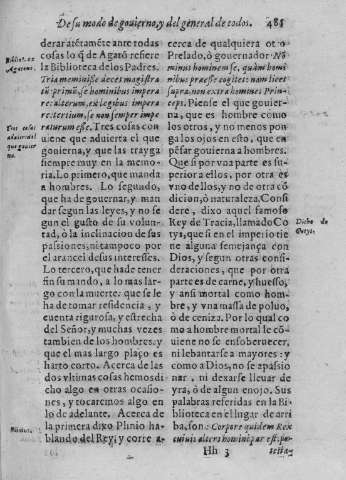 De su modo de gouierno, y del general de todos. 485
derar atẽtamẽte ante todas
cosas lo q̃ de Agatõ refiere
la Biblioteca de los Padres.
Tria meminisse decet magistra
tũ: primũ, se hominibus impera
re: alterum, ex legibus impera
re: tertium, se non semper impe
raturum esse. Tres cosas con
uiene que aduierta el que
gouierna, y que las trayga
siempre muy en la memo-
ria. Lo primero, que manda
a hombres. Lo segundo,
que ha de gouernar, y man
dar segun las leyes, y no se
gun el gusto de su volun-
tad, ò la inclinacion de sus
passiones, ni tampoco por
el arancel de sus interesses.
Lo tercero, que ha de tener
fin su mando, a lo mas lar-
go con la muerte: que se le
ha de tomar residencia, y
cuenta rigurosa, y estrecha
del Señor, y muchas vezes
tambien de los hombres, y
que el mas largo plaço es
harto corto. Acerca de las
dos vltimas cosas hemos di
cho algo en otras ocasio-
nes, y tocaremos algo en
lo de adelante. Acerca de
la primera dixo Plinio ha-
blando del Rey, y corre a-
Tres cosas
aduierta el
que gouier
na.
cerca de qualquiera otro
Prelado, ò gouernador: No
minus hominem se, quàm homi
nibus praesse cogitet: nam licet
supra, non extra homines Prin-
ceps. Piense el que gouier-
na, que es hombre como
los otros, y no menos pon
ga los ojos en esto, que en
pẽsar gouierna a hombres.
Que si por vna parte es su-
perior a ellos, por otra es
vno dellos, y no de otra cõ
dicion, ò naturaleza. Consi
dere, dixo aquel famoso
Rey de Tracia, llamado Co
tys, que si en el imperio tie
ne alguna semejança con
Dios, y segun otras consi-
deraciones, que por otra
parte es de carne, y huesso,
y ansi mortal como hom-
bre, y vna massa de poluo,
ò de ceniza. Por lo qual co
mo a hombre mortal le cõ-
uiene no se ensoberuecer,
ni lebantarse a mayores: y
como a Dios, no se apassio
nar, ni dexarse lleuar de
yra, ò de algun enojo. Sus
palabras referidas en la Bi-
blioteca en el lugar de arri
ba, son: Corpore quidem Rex
cuiuis alteri homini par est: po-
Dicho de
Cotys.
Hh 3